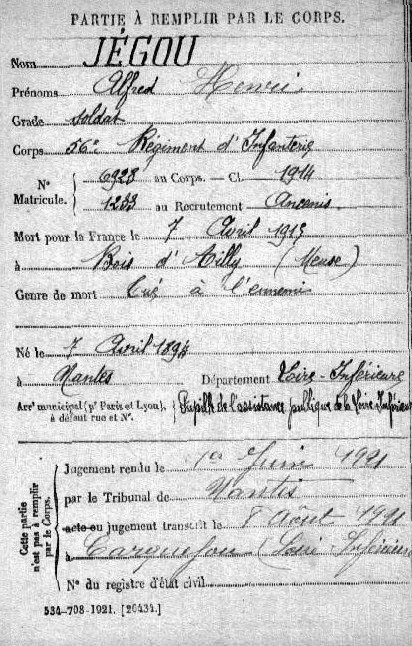 PARTIE À REMPLIR PAR LE CORPS.
Nom JÉGOU
Prénoms Alfred Henri
Grade soldat
Corps 56e Régiment d'Infanterie
N° Matricule. 6928 au Corps. — Cl. 1914
1233 au Recrutement Ancenis
Mort pour la France le 7 Avril 1915
à Bois d'Ailly (Meuse)
Genre de mort Tué à l'ennemi
Né le 7 Avril 1894
à Nantes Département Loire-Inférieure
Arrt municipal (pr Paris et Lyon), à défaut rue et N°. Pupille de l'assistance publique de la Loire-Inférieure
Cette partie n'est pas à remplir par le Corps.
Jugement rendu le 1er Juin 1921
par le Tribunal de Nantes
acte ou jugement transcrit le Août 1921
à Carquefou (Loire-Inférieure
N° du registre d'état civil
534-708-1921. [26434.]